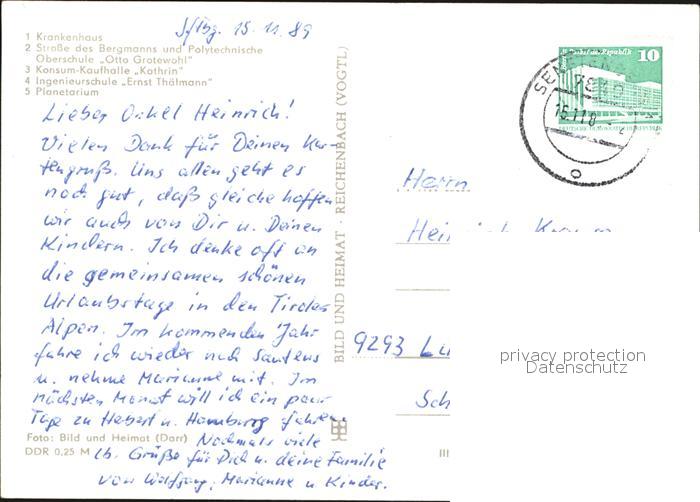 Sftbg. 15. 11. 89
1 Krankenhaus
2 Straße des Bergmanns und Polytechnische
Oberschule „Otto Grotewohl"
3 Konsum-Kaufhalle „Kathrin"
4 Ingenieurschule „Ernst Thälmann"
5 Planetarium
Lieber Onkel Heinrich!
Vielen Dank für Deinen Kar-
tengruß. Uns allen geht es
noch gut, daß gleiche hoffen
wir auch von Dir u. Deinen
Kindern. Ich denke oft an
die gemeinsamen schönen
Urlaubstage in den Tiroler
Alpen. Im kommenden Jahr
fahre ich wieder nach Sautens
u. nehme Marianne mit. Im
nächsten Monat will ich ein paar
Tage zu Hebert u. Hamburg fahren.
Nochmals viele
lb. Grüße für Dich u. deine Familie
von Wolfgang, Marianne u Kinder.
Foto: Bild und Heimat (Darr)
DDR 0,25 M
BILD UND HEIMAT · REICHENBACH (VOGTL)
III
Palast der Republik 10
DEUTSCHE DEMOKRATISCHE REPUBLIK
15.11.8
Herrn
9293 Lu
Sch
privacy protection
Datenschutz